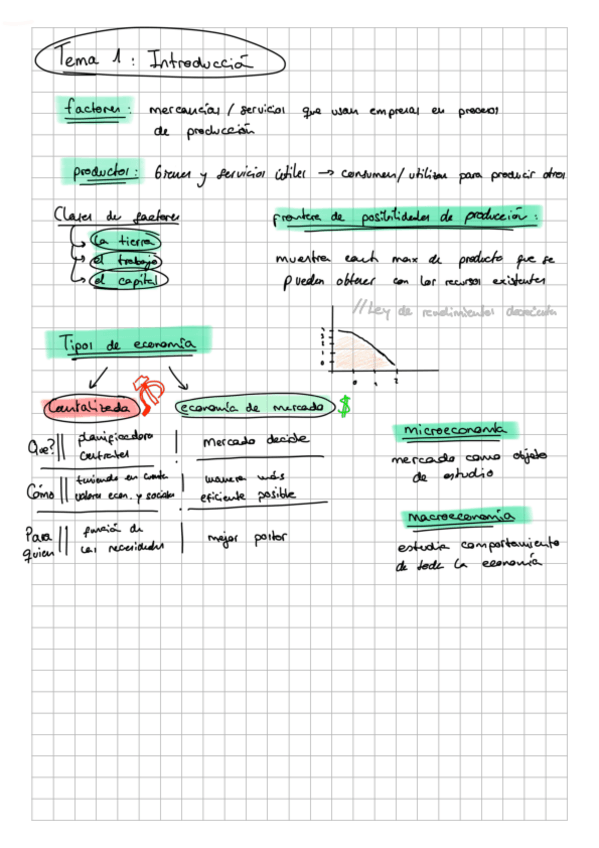 Tema 1: Introducción
factores: mercancías / servicios que usan empresas en procesos
de producción
productos: bienes y servicios útiles → consumen/utilizan para producir otros
Clases de factores
la tierra
el trabajo
el capital
frontera de posibilidades de producción:
muestra max de producto que se
pueden obtener con los recursos existentes
//Ley de rendimientos decreciente
0 1 2
Tipos de economía
Centralizada
economía de mercado $
Que? planificadores centrales | mercado decide
Cómo teniendo en cuenta valores econ. y sociales | manera más eficiente posible
Para quien función de las necesidades | mejor postor
microeconomía
mercado como objeto
de estudio
macroeconomía
estudia comportamiento
de toda la economía